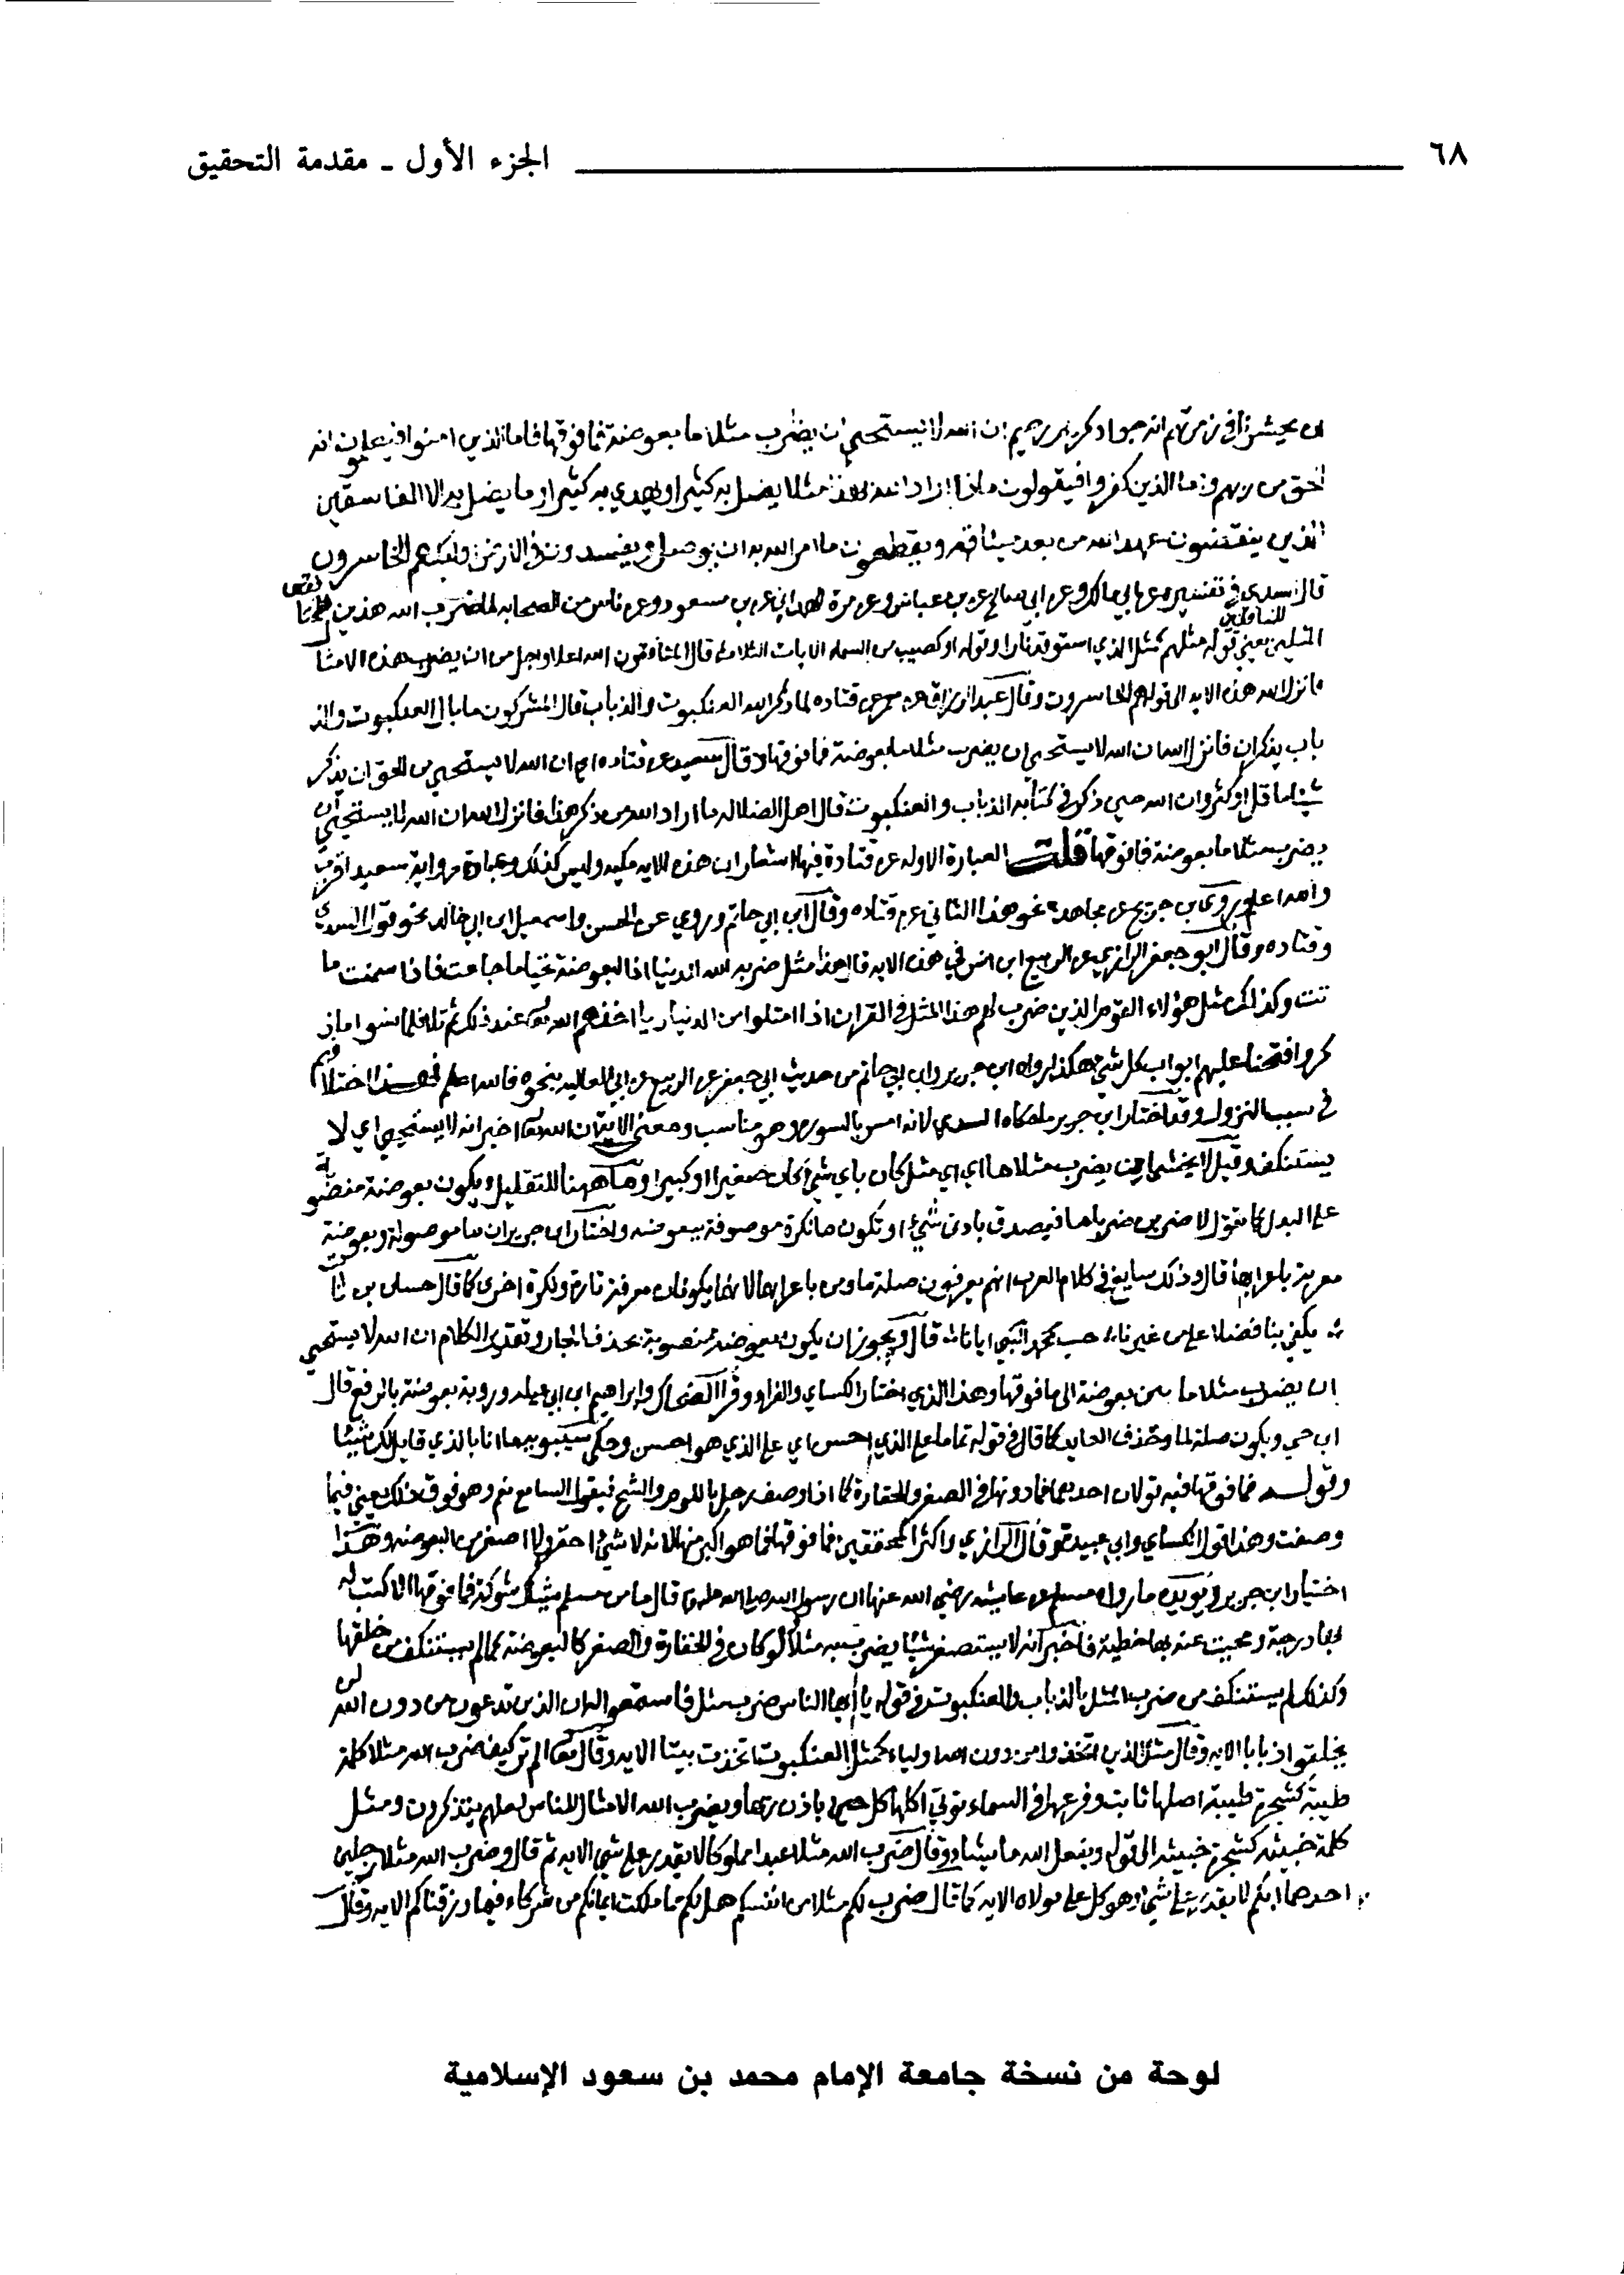 ٦٨ الجزء الأول ـ مقدمة التحقيق
ان يحشرنا في زمرتهم انه جواد كريم رحيم ان الله لا يستحيي ان يضرب مثلا ما بعوضة فما فوقها فاما الذين امنوا فيعلمون انه
الحق من ربهم واما الذين كفروا فيقولون ماذا اراد الله بهذا مثلا يضل به كثيرا ويهدي به كثيرا وما يضل به الا الفاسقين
الذين ينقضون عهد الله من بعد ميثاقه ويقطعون ما امر الله به ان يوصل ويفسدون في الارض اولئك هم الخاسرون
قال السدي في تفسيره عن ابي مالك وعن ابي صالح عن ابن عباس وعن مرة الهمداني عن بن مسعود وعن ناس من الصحابه لما ضرب الله هذين
المثلين للمنافقين يعني قوله مثلهم كمثل الذي استوقد نارا وقوله او كصيب من السماء الايات الثلاث قال المنافقون الله اعلا واجل من ان يضرب هذه الامثا
فانزل الله هذه الايه الى قوله هم الخاسرون وقال عبد الرزاق عن معمر عن قتاده لما ذكر الله العنكبوت والذباب قال المشركون ما بال العنكبوت والذ
باب يذكران فانزل الله ان الله لا يستحيي ان يضرب مثلا ما بعوضة فما فوقها وقال سعيد عن قتاده اي ان الله لا يستحيي من الحق ان يذكر
شيئا ما قل او كثر وان الله حين ذكر في كتابه الذباب والعنكبوت قال اهل الضلاله ما اراد الله من ذكر هذا فانزل الله ان الله لا يستحيي ان
يضرب مثلا ما بعوضة فما فوقها قلت العبارة الاوله عن قتادة فيها اشعار ان هذه الايه مكيه وليس كذلك وعبارة رواية سعيد اقرب
والله اعلم وروى بن جريج عن مجاهد نحو هذا الثاني عن قتاده وقال ابن ابي حاتم وروي عن الحسن واسمعيل ابن ابي خالد نحو قول السدي
وقتاده وقال ابو جعفر الرازي عن الربيع ابن انس في هذه الايه قال هذا مثل ضربه الله الدنيا اذا البعوضة تحيا ما جاعت فاذا سمنت ما
تت وكذلك مثل هؤلاء القوم الذين ضرب لهم هذا المثل في القران اذا امتلوا من الدنيا ريا اخذهم الله عند ذلك ثم تلا فلما نسوا ما ذ
كروا فتحنا عليهم ابواب كل شي هكذا رواه ابن جرير وابن ابي حاتم من حديث ابي جعفر عن الربيع عن ابي العاليه بنحوه فالله اعلم فهذا اختلافهم
في سبب النزول وقد اختار ابن جرير ما حكاه السدي لانه امس بالسوره وهو مناسب ومعنى الايه ان الله اخبر انه لا يستحيي اي لا
يستنكف وقيل لا يخشى ان يضرب مثلا ما اي اي مثل كان باي شي كان صغيرا او كبيرا وما ههنا للتقليل ويكون بعوضة منصوبة
على البدل كما تقول لاضربن ضربا ما فيصدق بادنى شيء او تكون ما نكرة موصوفة ببعوضه واختار ابن جرير ان ما موصولة وبعوضة
معربة باعرابها قال وذلك سايغ في كلام العرب انهم يعربون صلة ما ومن باعرابهما لانهما يكونان معرفة تارة ونكرة اخرى كما قال حسان بن ثا
يكفي بنا فضلا على من غيرنا حب محمد النبي ايانا قال ويجوز ان يكون بعوضة منصوبة بحذف الجار وتقدير الكلام ان الله لا يستحيي
ان يضرب مثلا ما بين بعوضة الى ما فوقها وهذا الذي اختار الكساي والفرا وقرا الضحاك وابراهيم ابن ابي عبله وروبة بعوضة بالرفع قال
ابن جني ويكون صلة لما وحذف العايد كما قال في قوله تماما على الذي احسن اي على الذي هو احسن وحكى سيبويه ما انا بالذي قايل لك شيئا
وقوله فما فوقها فيه قولان احدهما فما دونها في الصغر والحقارة كما اذا وصف رجل باللوم والشح فيقول السامع نعم وهو فوق ذلك يعني فيما
وصفت وهذا قول الكساي وابي عبيد قال الرازي واكثر المحققين فما فوقها فما هو اكبر منها لانه لا شيء احقر ولا اصغر من البعوضه وهذا
اختيار ابن جرير ويويده ما رواه مسلم عن عايشه رضي الله عنها ان رسول الله صلى الله عليه وسلم قال ما من مسلم يشاك شوكة فما فوقها الا كتبت له
بها درجة ومحيت عنه بها خطية فاخبر انه لا يستصغر شيئا يضرب به مثلا لو كان في الحقارة والصغر كالبعوضة كما لم يستنكف من خلقها
وكذلك لم يستنكف من ضرب المثل بالذباب والعنكبوت في قوله يا ايها الناس ضرب مثل فاستمعوا له ان الذين تدعون من دون الله لن
يخلقوا ذبابا الايه وقال مثل الذين اتخذوا من دون الله اولياء كمثل العنكبوت اتخذت بيتا الايه وقال تعالى الم تر كيف ضرب الله مثلا كلمة
طيبة كشجرة طيبة اصلها ثابت وفرعها في السماء توتي اكلها كل حين باذن ربها ويضرب الله الامثال للناس لعلهم يتذكرون ومثل
كلمة خبيثه كشجرة خبيثه الى قوله ويفعل الله ما يشاء وقال ضرب الله مثلا عبدا مملوكا لا يقدر على شي الايه ثم قال وضرب الله مثلا رجلين
احدهما ابكم لا يقدر على شي وهو كل على مولاه الايه كما قال ضرب لكم مثلا من انفسكم هل لكم مما ملكت ايمانكم من شركاء فيما رزقناكم الايه وقال
لوحة من نسخة جامعة الإمام محمد بن سعود الإسلامية